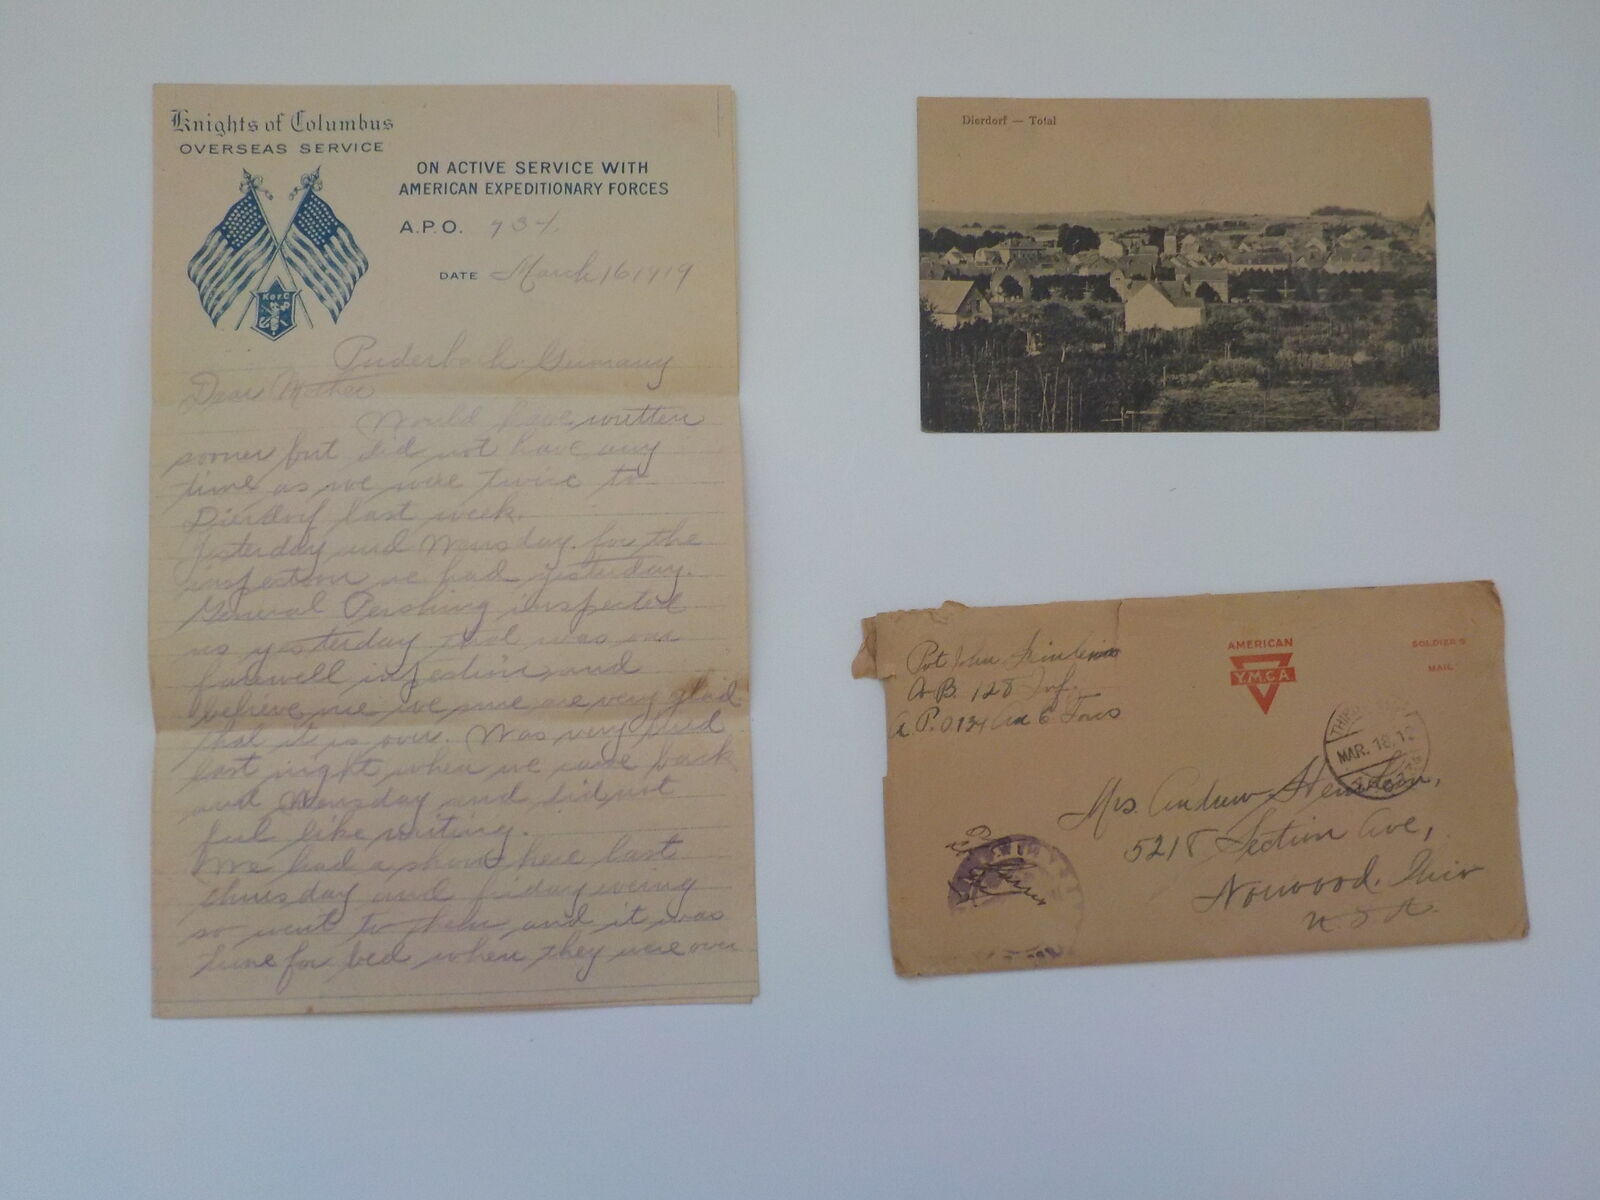 Knights of Columbus
OVERSEAS SERVICE
ON ACTIVE SERVICE WITH
AMERICAN EXPEDITIONARY FORCES
A.P.O. 734
DATE March 16 1919
K of C
Puderbach Germany
Dear Mother
Would have written
sooner but did not have any
time as we were twice to
Dierdorf last week.
Yesterday and Wensday for the
inspection we had yesterday.
General Pershing inspected
us yesterday that was our
farewell inspection and
believe me we sure are very glad
that it is over. Was very tired
last night when we came back
and Wensday and did not
feel like writing.
We had a show here last
thursday and friday evening
so went to them and it was
time for bed when they were over
Dierdorf — Total
Pvt John
Co B. 128 Inf.
A.P.O 734 Am E Forces
AMERICAN
Y.M.C.A.
SOLDIER'S
MAIL
MAR. 18. 19
Mrs. Andrew
5218 Section Ave,
Norwood, Ohio
U. S. A.